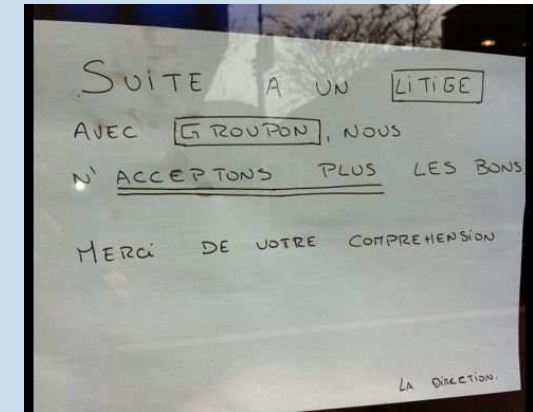 SUITE A UN LITIGE
AVEC GROUPON, NOUS
N' ACCEPTONS PLUS LES BONS
MERCI DE VOTRE COMPREHENSION
LA DIRECTION.